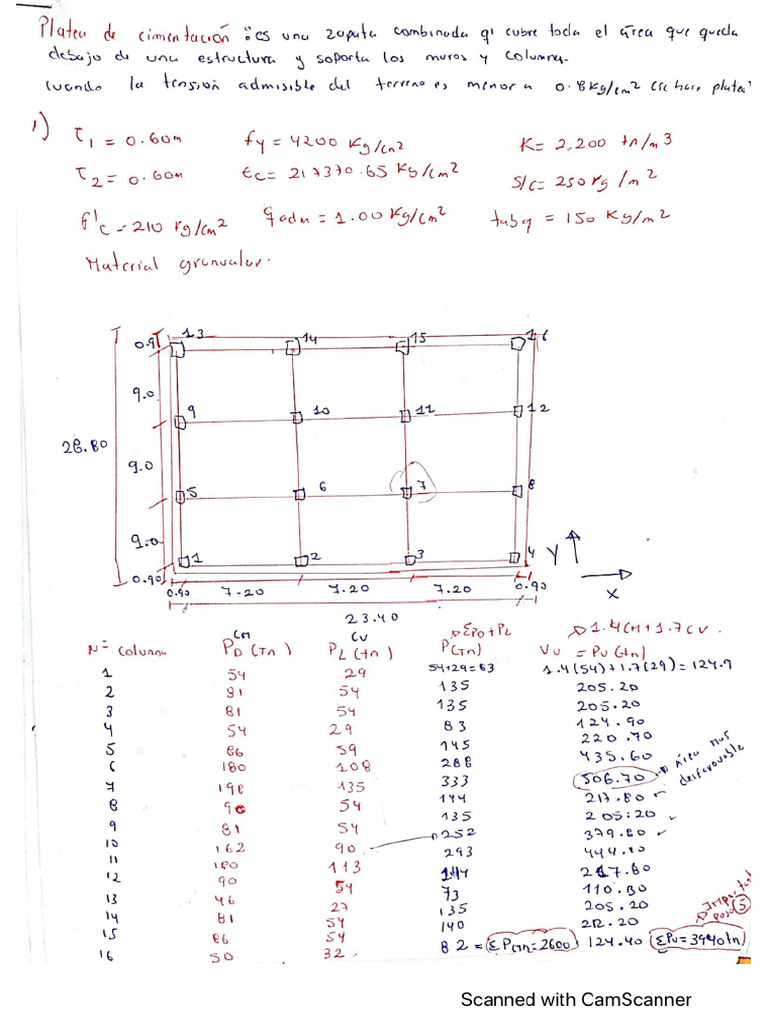 Platea de cimentación : es una zapata combinada q' cubre toda el área que queda
debajo de una estructura y soporta los muros y columnas.
Cuando la tensión admisible del terreno es menor a 0.8Kg/cm² (se hace platea)
1) τ1 = 0.60m fy = 4200 Kg/cm² K = 2,200 tn/m3
τ2 = 0.60m Ec = 217370.65 Kg/cm² S/C = 250 Kg/m²
f'c = 210 Kg/cm² q adm = 1.00 Kg/cm² tabq = 150 Kg/m²
Material granular.
0.9 13 14 15 16
9.0
9 10 11 12
28.80
9.0
5 6 7 8
9.0
1 2 3 4 Y
0.90
0.90 7.20 7.20 7.20 0.90 X
23.40
CM CV ΣPD+PL 1.4CM+1.7CV.
N= Columna PD (Tn) PL (tn) P(Tn) Vu = PU (tn)
1 54 29 54+29=83 1.4(54)+1.7(29) = 124.9
2 81 54 135 205.20
3 81 54 135 205.20
4 54 29 83 124.90
5 86 59 145 220.70
6 180 108 288 435.60
7 198 135 333 506.70 Área mas desfavorable
8 90 54 144 217.80
9 81 54 135 205.20
10 162 90 252 379.80
11 180 113 293 444.10
12 90 54 144 217.80
13 46 27 73 110.30
14 81 54 135 205.20
15 86 54 140 212.20
16 50 32 82 = ΣP(tn)=2600 124.40 ΣPu=3940tn
5
Scanned with CamScanner